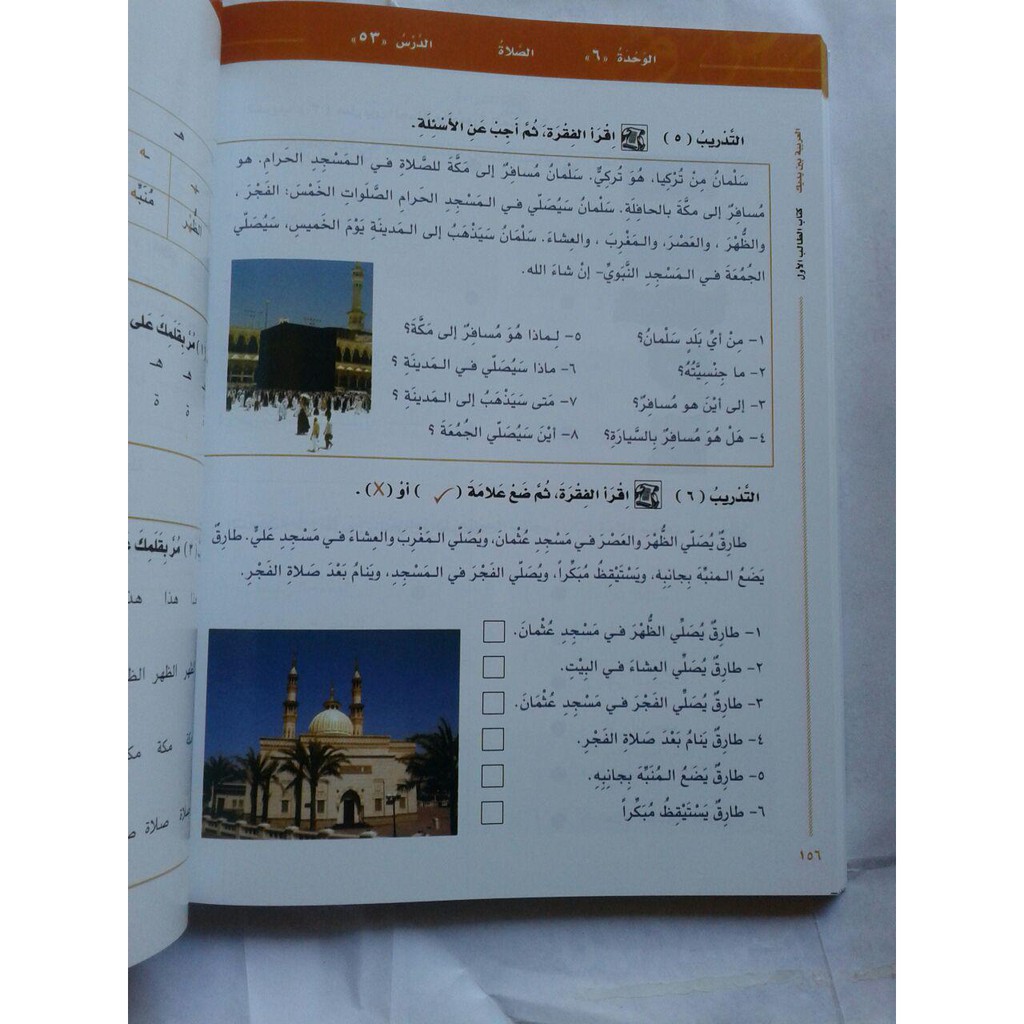 الوَحْدَةُ «٦» الصَّلاةُ الدَّرْسُ «٥٣»
العربية بين يديك كتاب الطالب الأول
التَّدْرِيبُ ( ٥ ) اِقْرَأ الفِقْرَةَ، ثُمَّ أَجِبْ عَنِ الأَسْئِلَةِ.
سَلْمانُ مِنْ تُرْكِيا، هُوَ تُركِيٌّ. سَلْمانُ مُسافِرٌ إلى مَكَّةَ للصَّلاةِ في المَسْجِدِ الحَرامِ. هو
مُسافِرٌ إلى مَكَّةَ بالحافِلَةِ. سَلْمانُ سَيُصَلّي في المَسْجِدِ الحَرامِ الصَّلَواتِ الخَمْسَ: الفَجْرَ ،
والظُّهْرَ ، والعَصْرَ، والمَغْرِبَ ، والعِشاءَ. سَلْمانُ سَيَذْهَبُ إلى المَدينَةِ يَوْمَ الخَميسِ، سَيُصَلّي
الجُمُعَةَ في المَسْجِدِ النَّبَوِيِّ- إنْ شاءَ الله.
١- مِنْ أيِّ بَلَدٍ سَلْمانُ؟
٢- ما جِنْسِيَّتُهُ؟
٣- إلى أيْنَ هو مُسافِرٌ؟
٤- هَلْ هُوَ مُسافِرٌ بِالسَّيارَةِ؟
٥- لِماذا هُوَ مُسافِرٌ إلى مَكَّةَ؟
٦- ماذا سَيُصَلّي في المَدينَةِ ؟
٧- مَتى سَيَذْهَبُ إلى المَدينَةِ ؟
٨- أيْنَ سَيُصَلّي الجُمُعَةَ ؟
التَّدْرِيبُ ( ٦ ) اِقْرَأ الفِقْرَةَ، ثُمَّ ضَعْ عَلامَةَ (✓) أوْ (X) .
طارِقٌ يُصَلّي الظُّهْرَ والعَصْرَ في مَسْجِدِ عُثْمانَ، ويُصَلّي المَغْرِبَ والعِشاءَ في مَسْجِدِ عَلِيٍّ. طارِقٌ
يَضَعُ المنبِّهَ بِجانِبِهِ، ويَسْتَيْقِظُ مُبَكِّراً، ويُصَلّي الفَجْرَ في المَسْجِدِ، ويَنامُ بَعْدَ صَلاةِ الفَجْرِ.
١- طارِقٌ يُصَلِّي الظُّهْرَ في مَسْجِدِ عُثْمانَ.
٢- طارِقٌ يُصَلِّي العِشاءَ في البيْتِ.
٣- طارِقٌ يُصَلِّي الفَجْرَ في مَسْجِدِ عُثْمانَ.
٤- طارِقٌ يَنامُ بَعْدَ صَلاةِ الفَجْرِ.
٥- طارِقٌ يَضَعُ المُنَبِّهَ بِجانِبِهِ.
٦- طارِقٌ يَسْتَيْقِظُ مُبَكِّراً
١٥٦
مُنَبِّه
الظُّهْر
(١) مُرْ بِقَلَمِكَ عَلى
(٢) مُرْ بِقَلَمِكَ
هذا
الظهر
مكة
صلاة